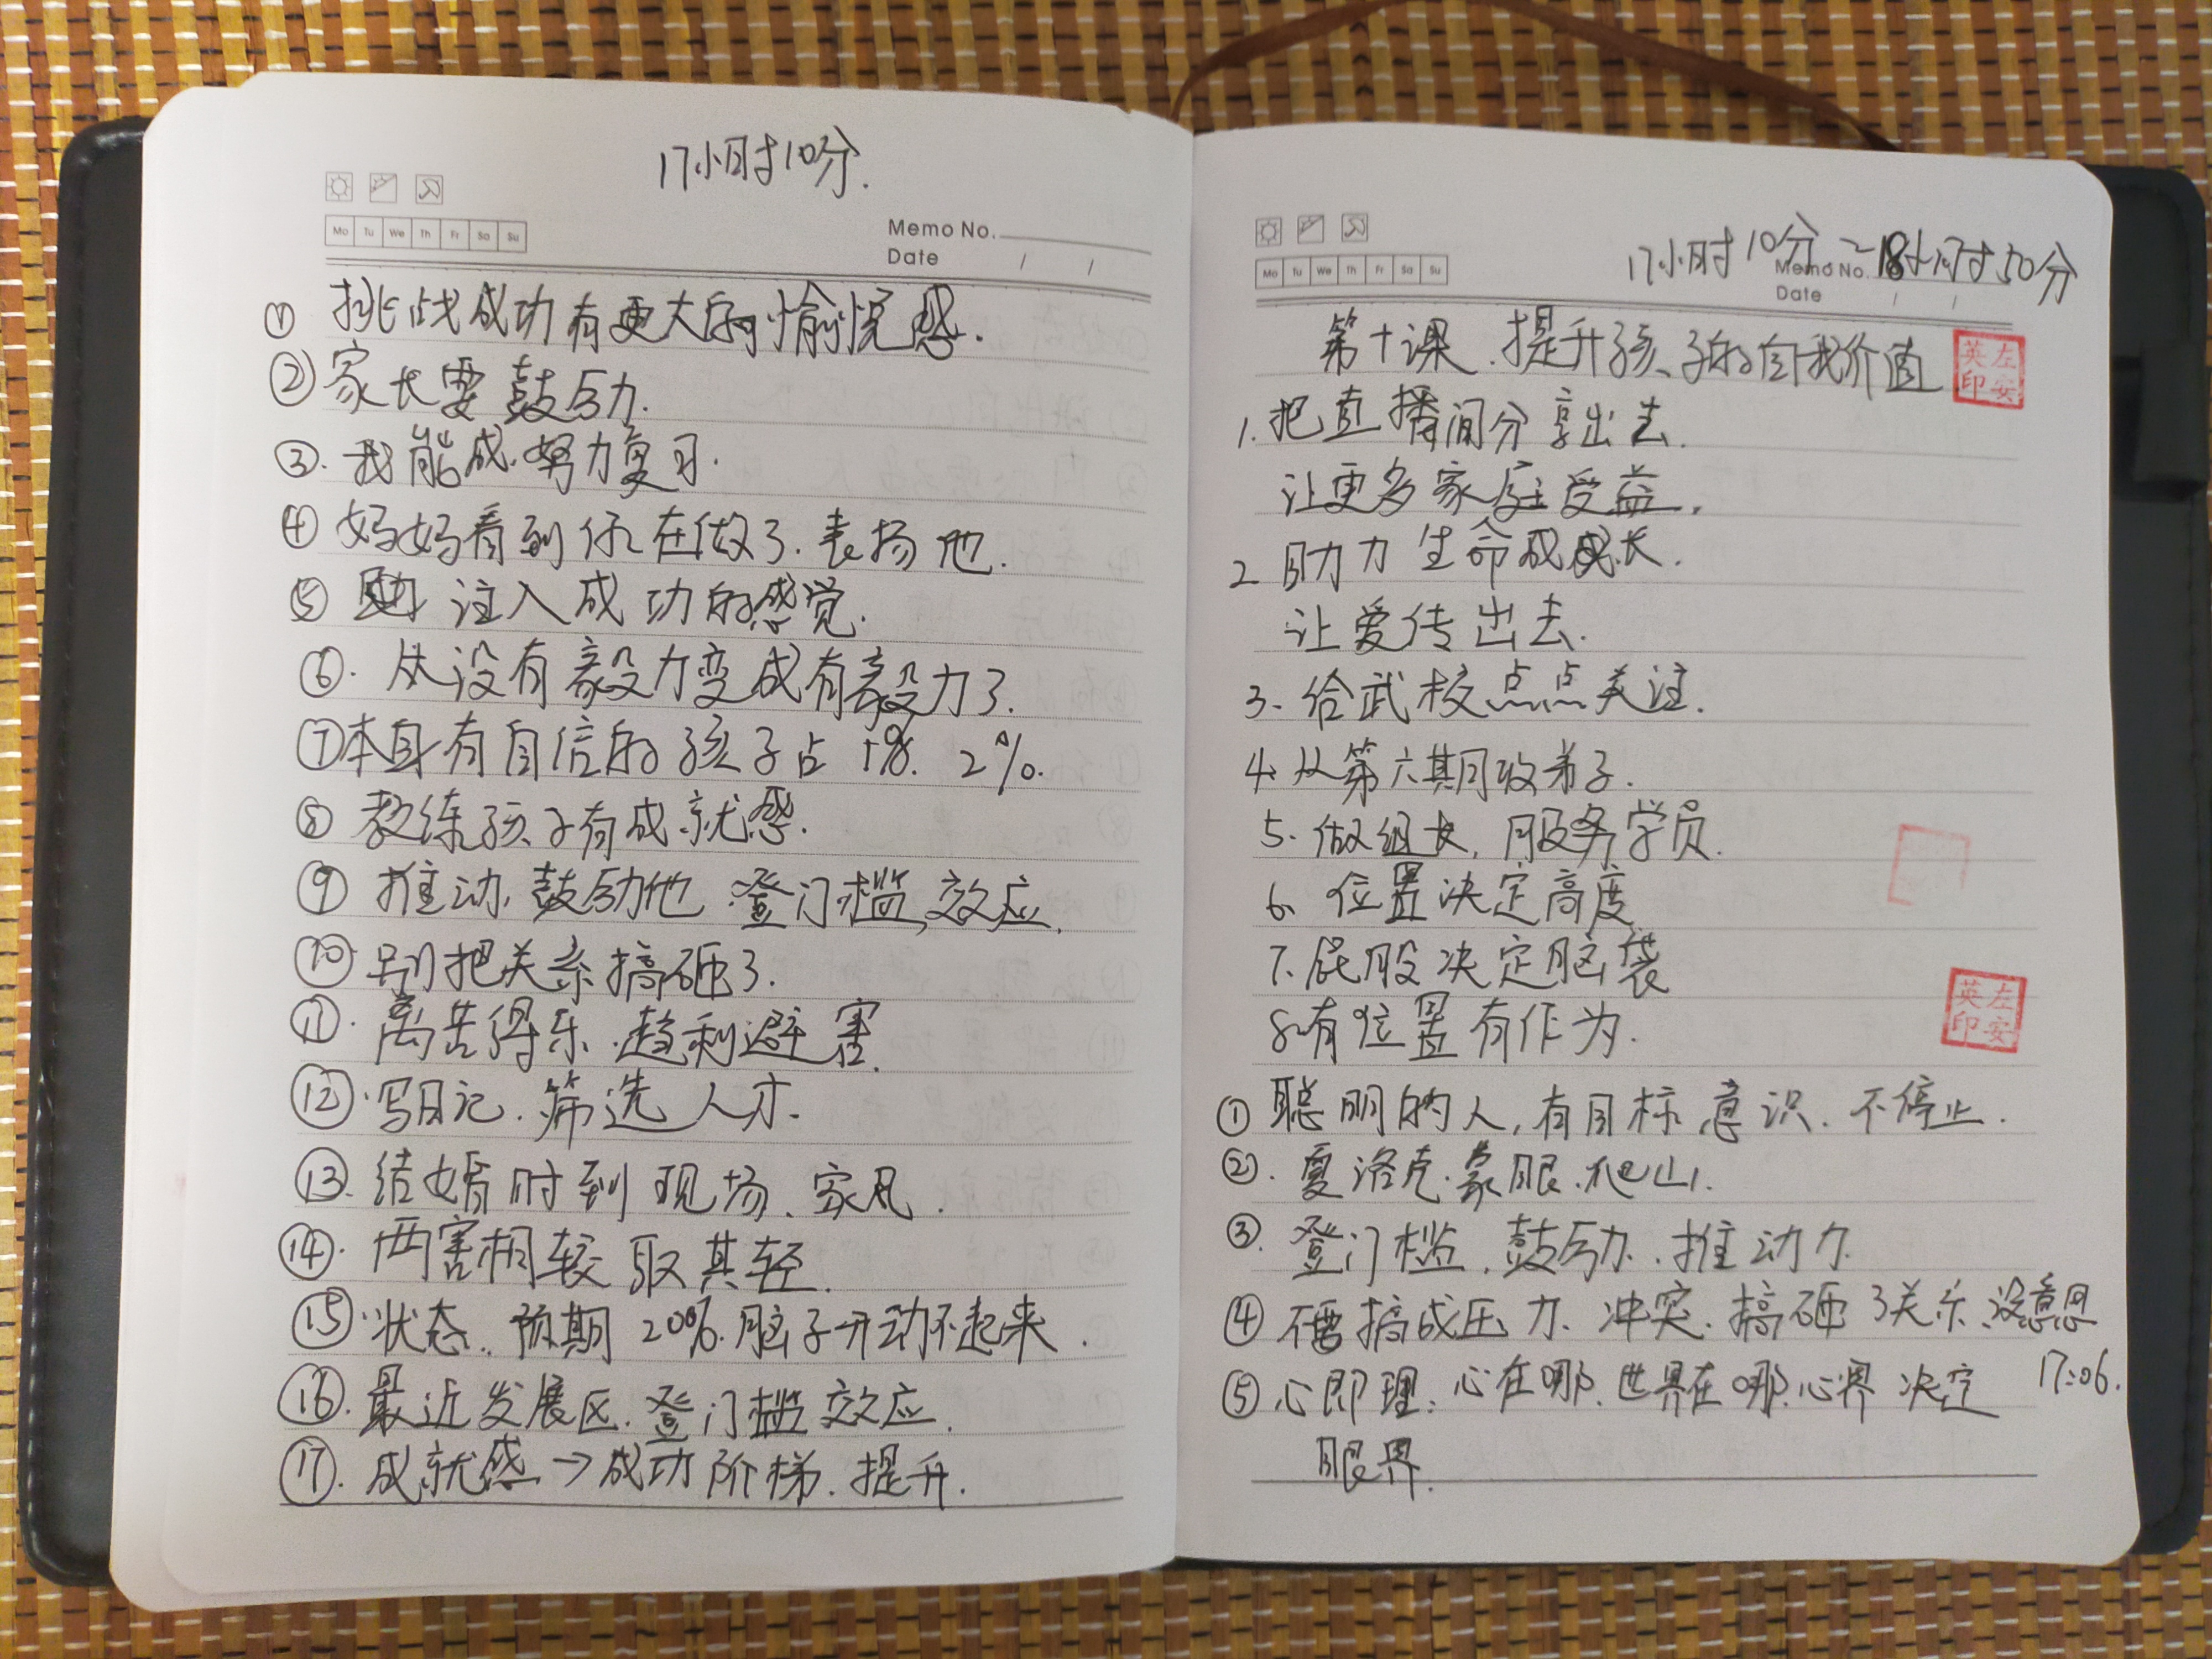 17小时10分.
Mo Tu We Th Fr Sa Su
Memo No.
Date / /
① 挑战成功有更大的愉悦感.
② 家长要鼓励.
③. 我能成.努力复习.
④ 妈妈看到你在做了.表扬他.
⑤ 注入成功的感觉.
⑥. 从没有毅力变成有毅力了.
⑦ 本身有自信的孩子占 1%. 2%.
⑧ 教练孩子有成就感.
⑨ 推动,鼓励他.登门槛效应.
⑩ 别把关系搞砸了.
⑪. 离苦得乐.趋利避害.
⑫. 写日记.筛选人才.
⑬. 结婚时到现场、家风.
⑭. 两害相较取其轻.
⑮. 状态.预期 200%.脑子开动不起来.
⑯. 最近发展区.登门槛效应.
⑰. 成就感→成功阶梯.提升.
17小时10分~18小时50分
Mo Tu We Th Fr Sa Su
Memo No.
Date / /
第十课.提升孩子的自我价值
左安英印
1. 把直播间分享出去.
让更多家庭受益.
2. 助力生命成长.
让爱传出去.
3. 给武校点点关注.
4. 从第六期收弟子.
5. 做组长,服务学员.
6. 位置决定高度
7. 屁股决定脑袋
8. 有位置有作为.
左安英印
① 聪明的人,有目标意识.不停止.
②. 夏洛克.蒙眼.爬山.
③. 登门槛.鼓励.推动力.
④ 不要搞成压力、冲突.搞砸了关系.没意思
⑤ 心即理:心在哪.世界在哪.心界决定 17:06.
眼界.